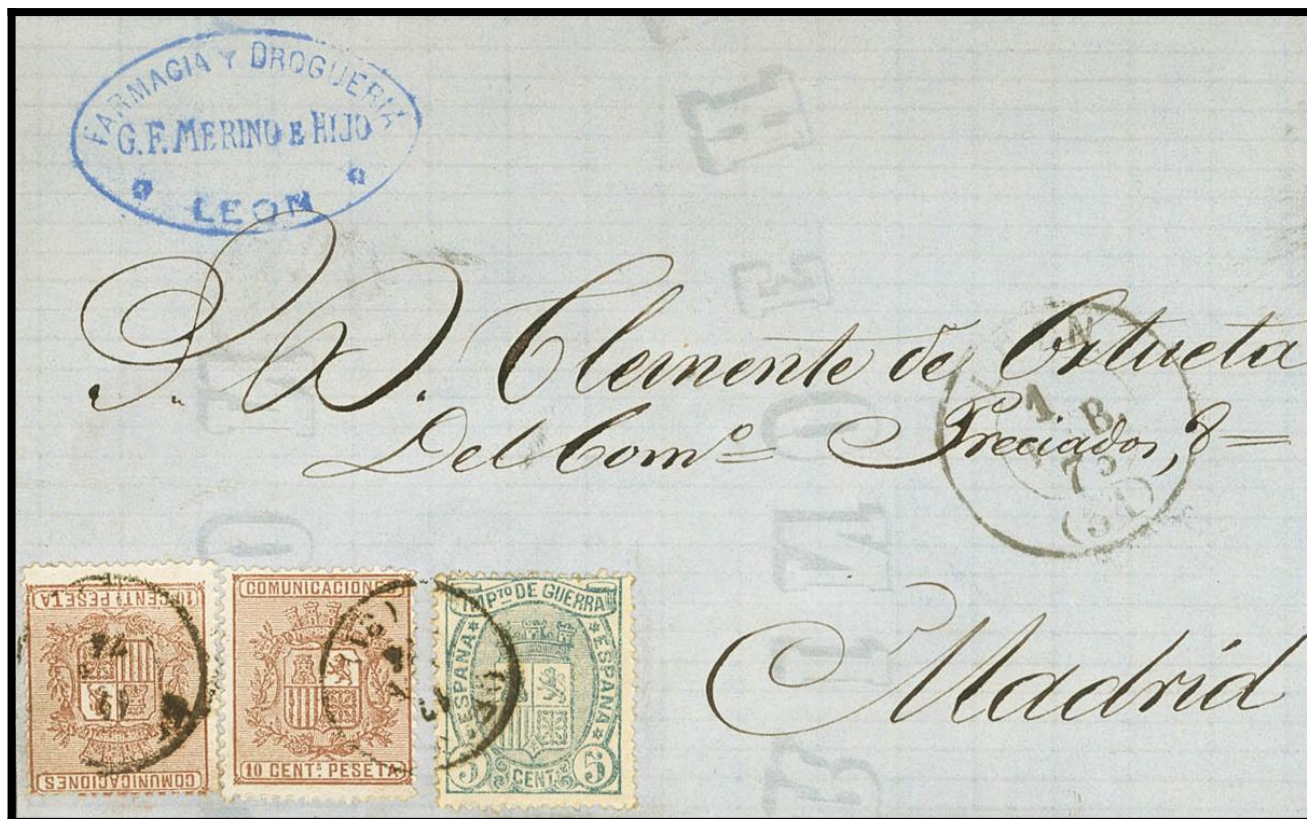 FARMACIA Y DROGUERIA
G. F. MERINO E HIJO
LEON
S. D. Clemente de Ortueta
Del Comº = Preciados, 8 =
Madrid
LEON
1
(31)
10 CENTˢ PESETA
COMUNICACIONES
COMUNICACIONES
10 CENTˢ PESETA
IMPᵀᴼ DE GUERRA
ESPAÑA
ESPAÑA
5 CENT. 5